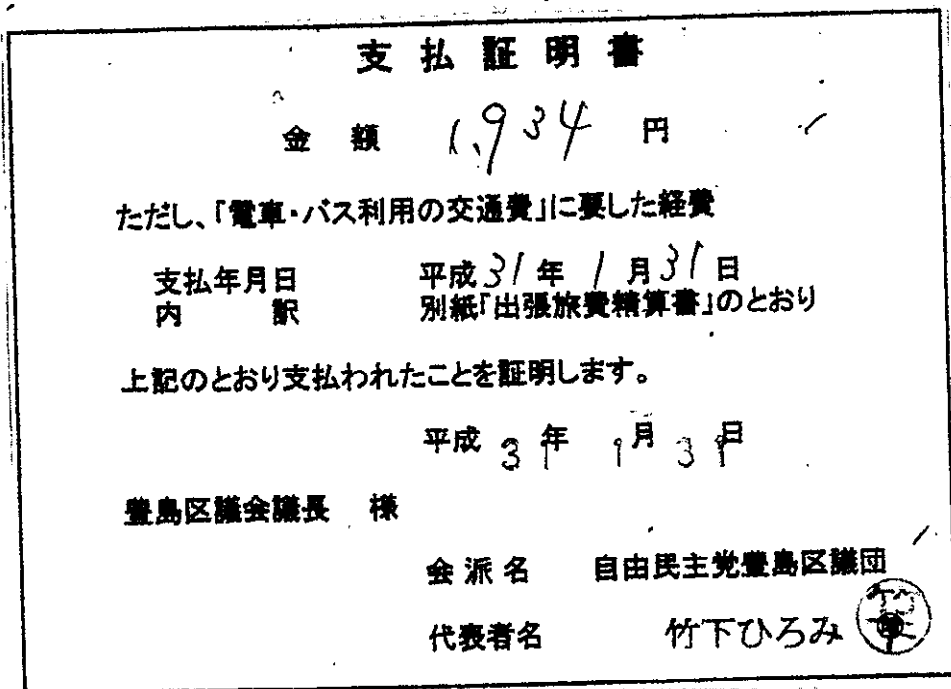 支払証明書
金額 1,934 円
ただし、「電車・バス利用の交通費」に要した経費
支払年月日 平成31年1月31日
内訳 別紙「出張旅費精算書」のとおり
上記のとおり支払われたことを証明します。
平成31年1月31日
豊島区議会議長 様
会派名 自由民主党豊島区議団
代表者名 竹下ひろみ